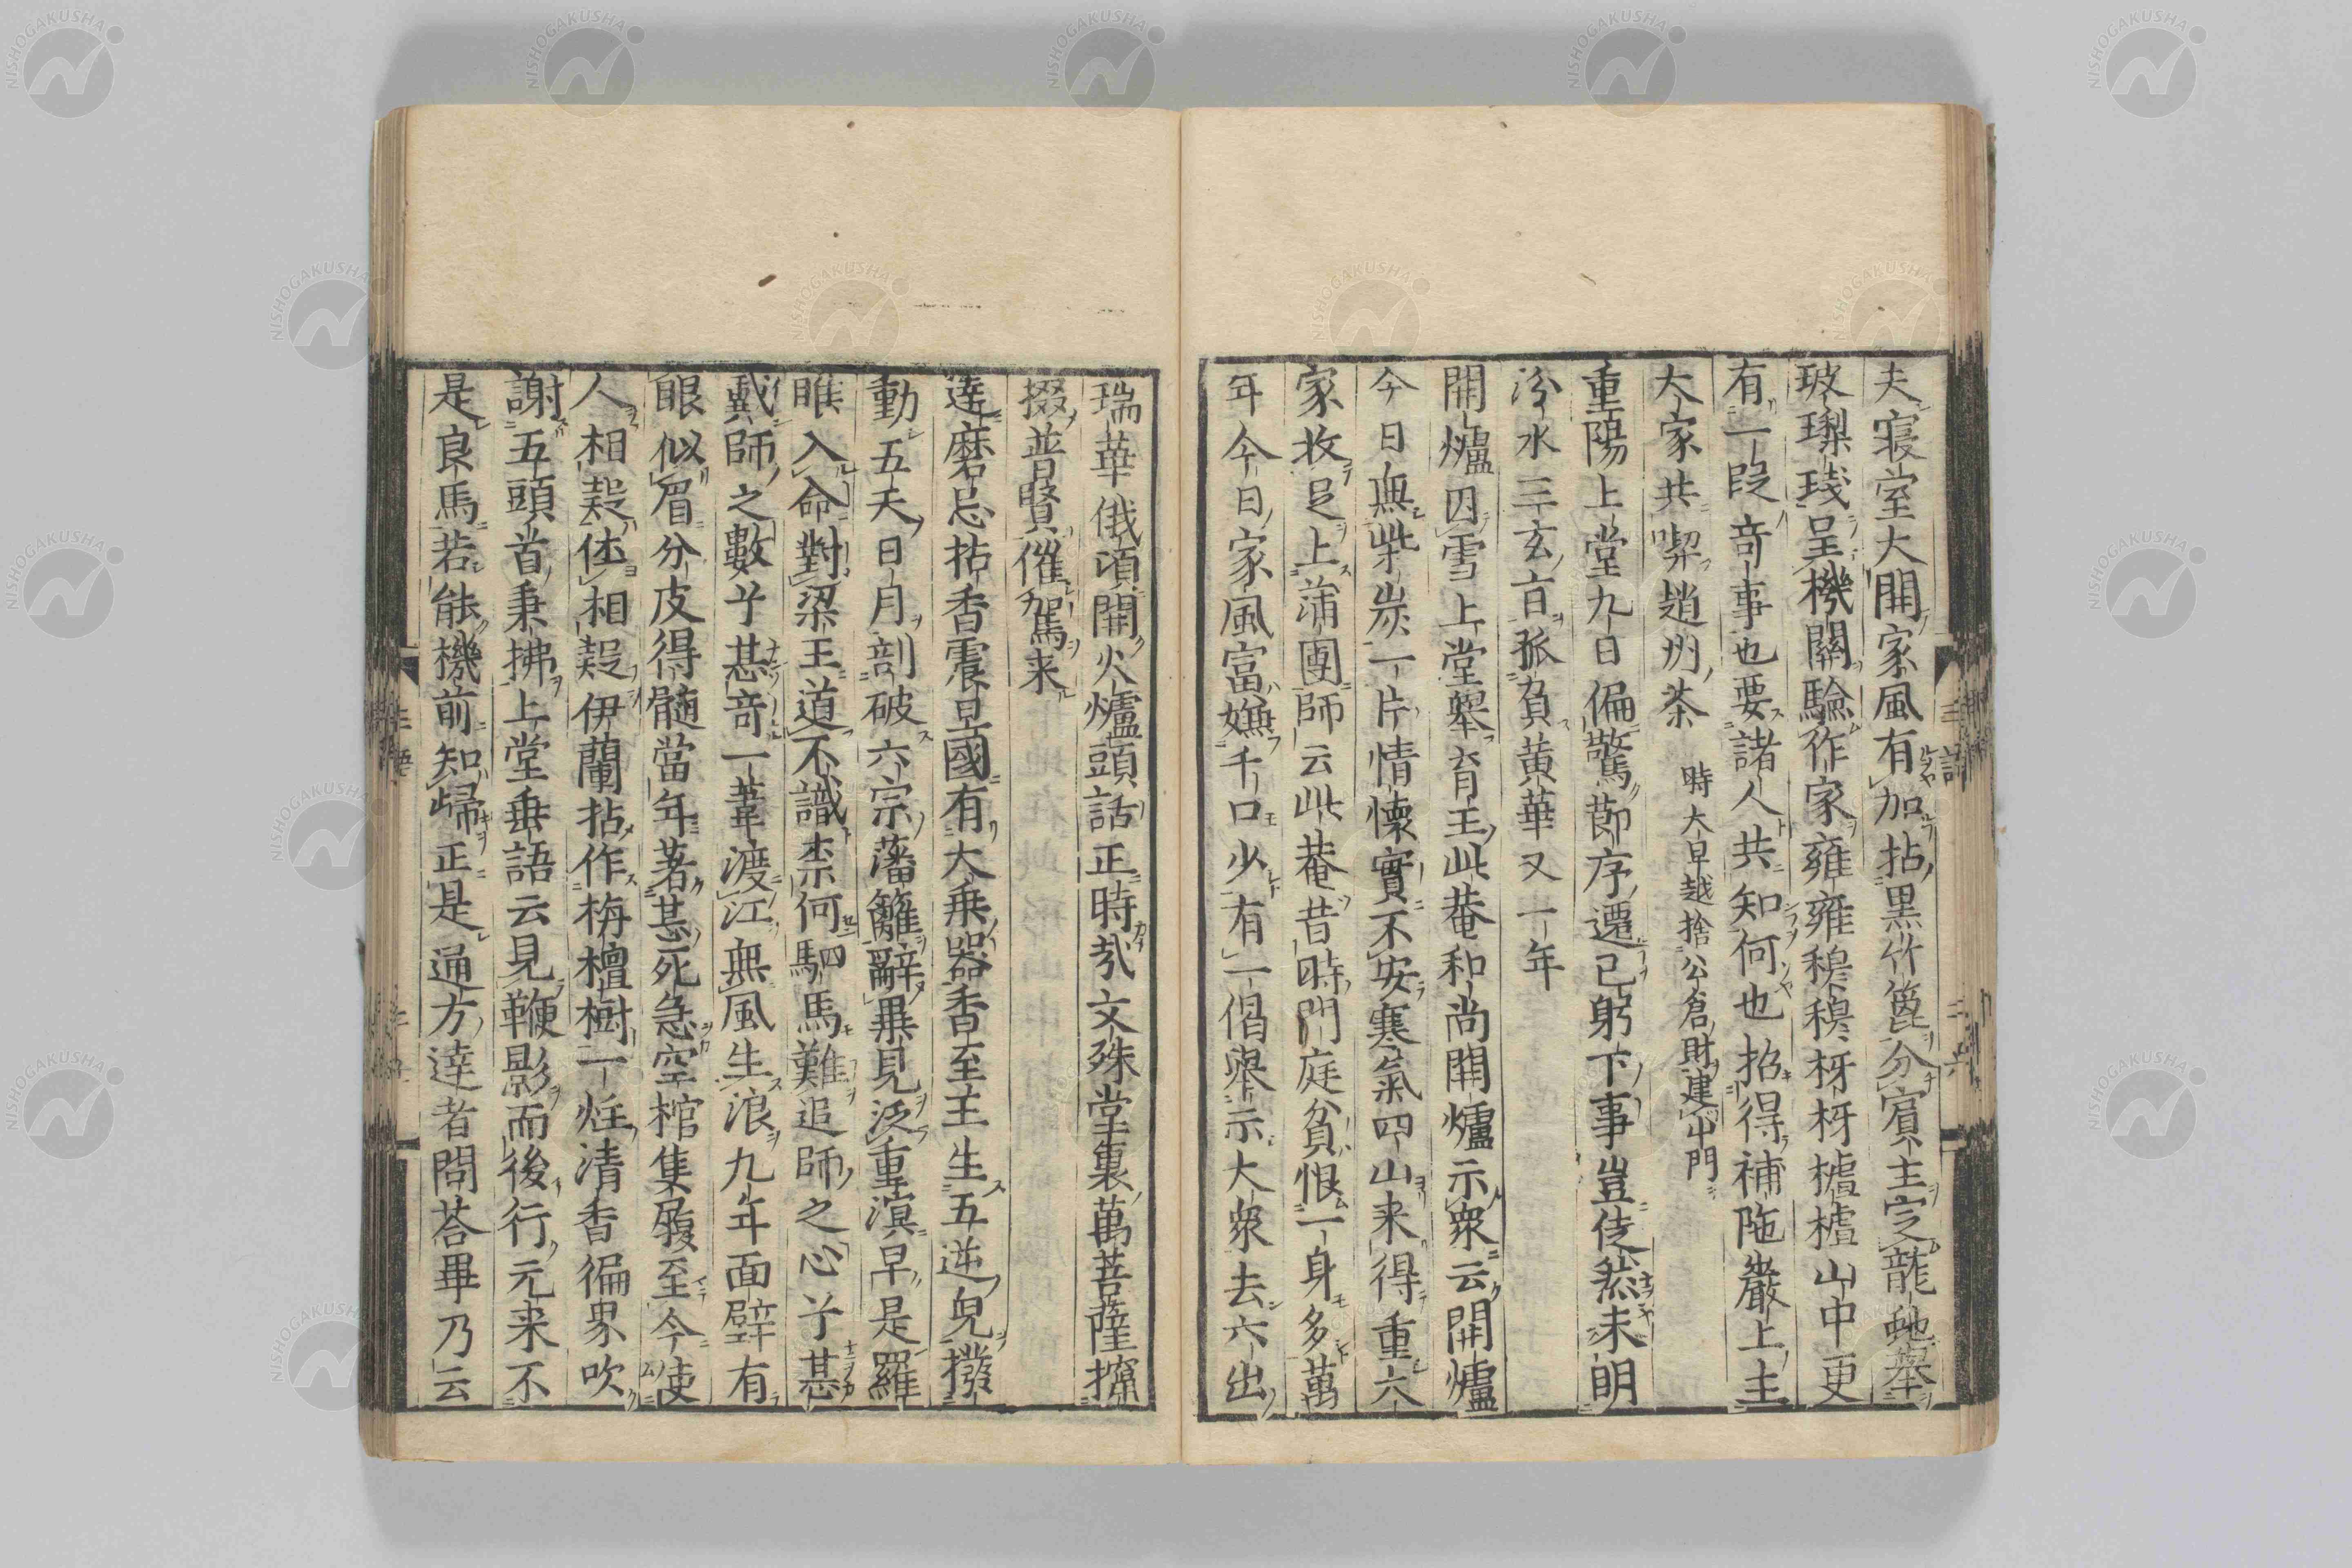 夫寢室大開家風有加拈黒竹篦分賓主定龍蛇挙
玻瓈琖呈機關驗作家雍雍穆穆枒枒樝樝山中更
有一段竒事也要諸人共知何也招得補陁巖上主
大家共喫趙州茶 時大旱越捨公倉財建山門
重陽上堂九日偏驚節序遷已躬下事豈徒然未明
汾水三玄㫖孤負黄華又一年
開爐因雪上堂舉育王此菴和尚開爐示衆云開爐
今日無柴炭一片情懐實不安寒氣四山来得重六
家收足上蒲團師云此菴昔時門庭貧恨一身多萬
年今日家風富嫌千口少有一偈擧示大衆去六出
瑞華俄頃開火爐頭話正時哉文殊堂裏萬菩薩攛
掇普賢催駕来
達磨忌拈香震旦國有大乗器香至王生五逆皃撥
動五天日月剖破六宗藩籬辭畢見泛重溟早是羅
睺入命對梁王道不識柰何駟馬難追師之心乎甚
戴師之數乎甚竒一葦渡江無風生浪九年面壁有
眼似眉分皮得髓當年著甚死急空棺隻履至今使
人相䜡体相䜡伊蘭拈作栴檀樹一炷清香徧界吹
謝五頭首秉拂上堂垂語云見鞭影而後行元来不
是良馬若能機前知歸正是通方達者問荅畢乃云